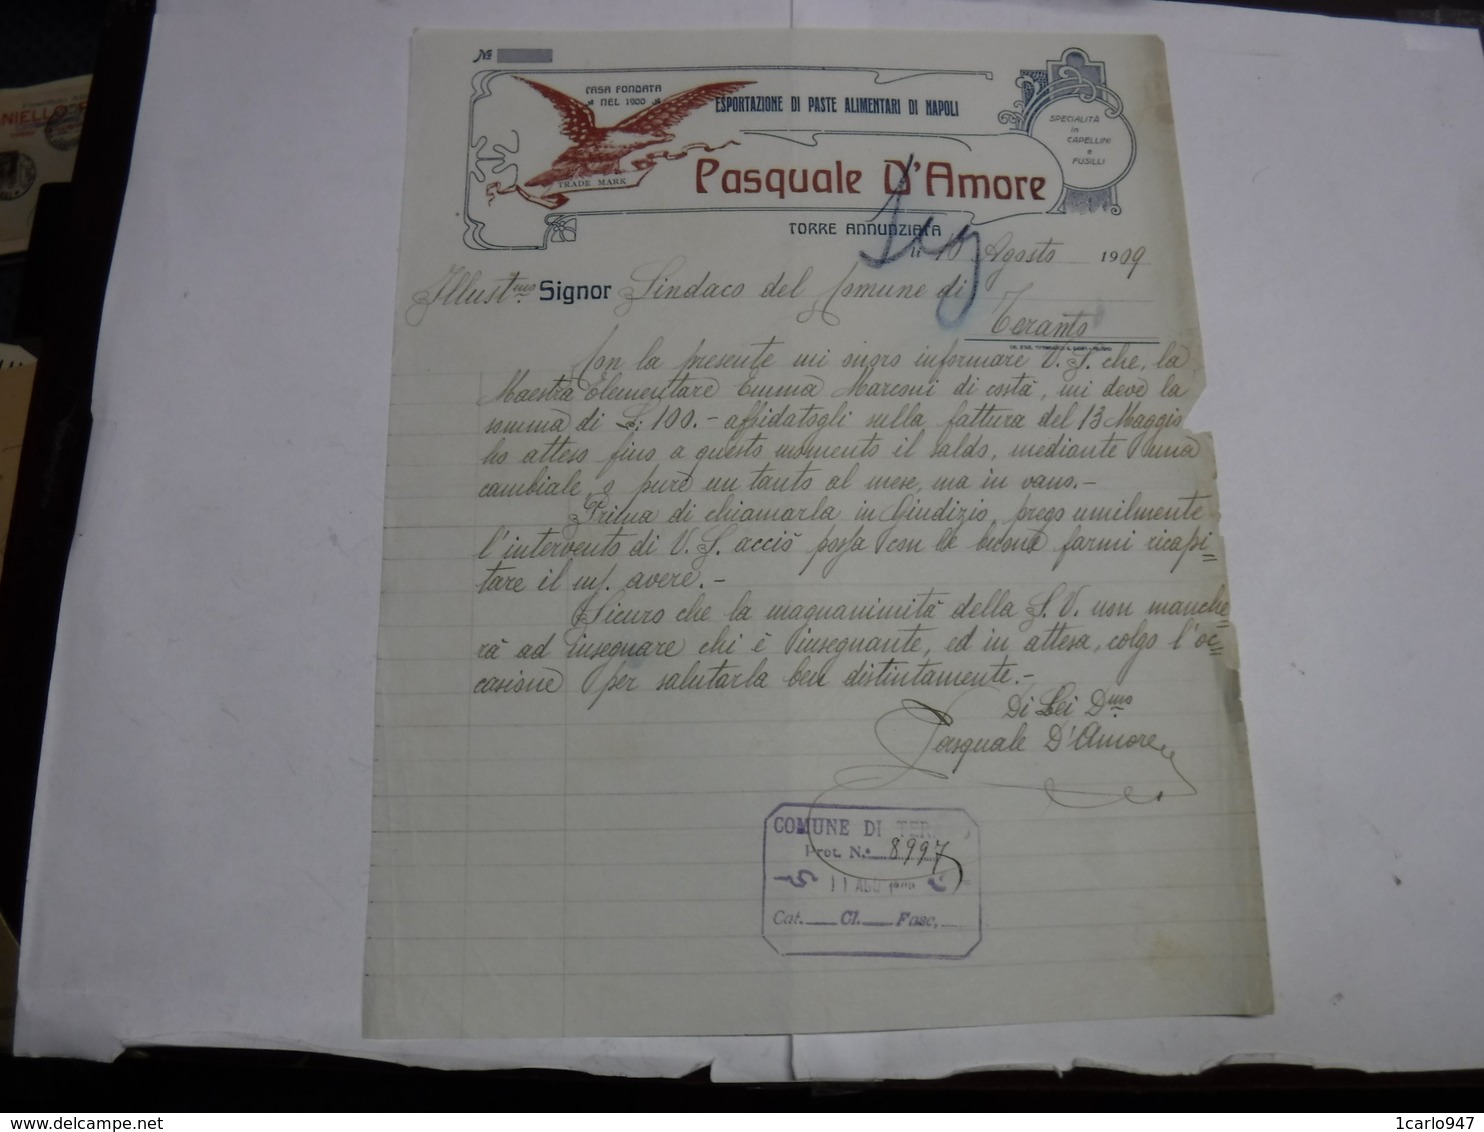 №
CASA FONDATA
NEL 1900
ESPORTAZIONE DI PASTE ALIMENTARI DI NAPOLI
SPECIALITÀ
in
CAPELLINI
e
FUSILLI
TRADE MARK
Pasquale D'Amore
TORRE ANNUNZIATA
li 10 Agosto 1909
Illustmo Signor Sindaco del Comune di
Teramo
Con la presente mi onoro informare V. S. che, la
Maestra Elementare Emma Marconi di costà, mi deve la
somma di L: 100.- affidatogli sulla fattura del 13 Maggio
ho atteso fino a questo momento il saldo, mediante una
cambiale, o pure un tanto al mese, ma in vano.-
Prima di chiamarla in Giudizio, prego umilmente
l'intervento di V. S. acciò possa con le buone farmi ricapi=
tare il mf. avere.-
Sicuro che la magnanimità della S. V. non manche=
rà ad insegnare chi è insegnante, ed in attesa, colgo l'oc=
casione per salutarla ben distintamente.-
Di Lei Dmo
Pasquale D'Amore
COMUNE DI TER
Prot. N.° 8997
11 AGO
Cat. Cl. Fasc.
NIELLO
1carlo947